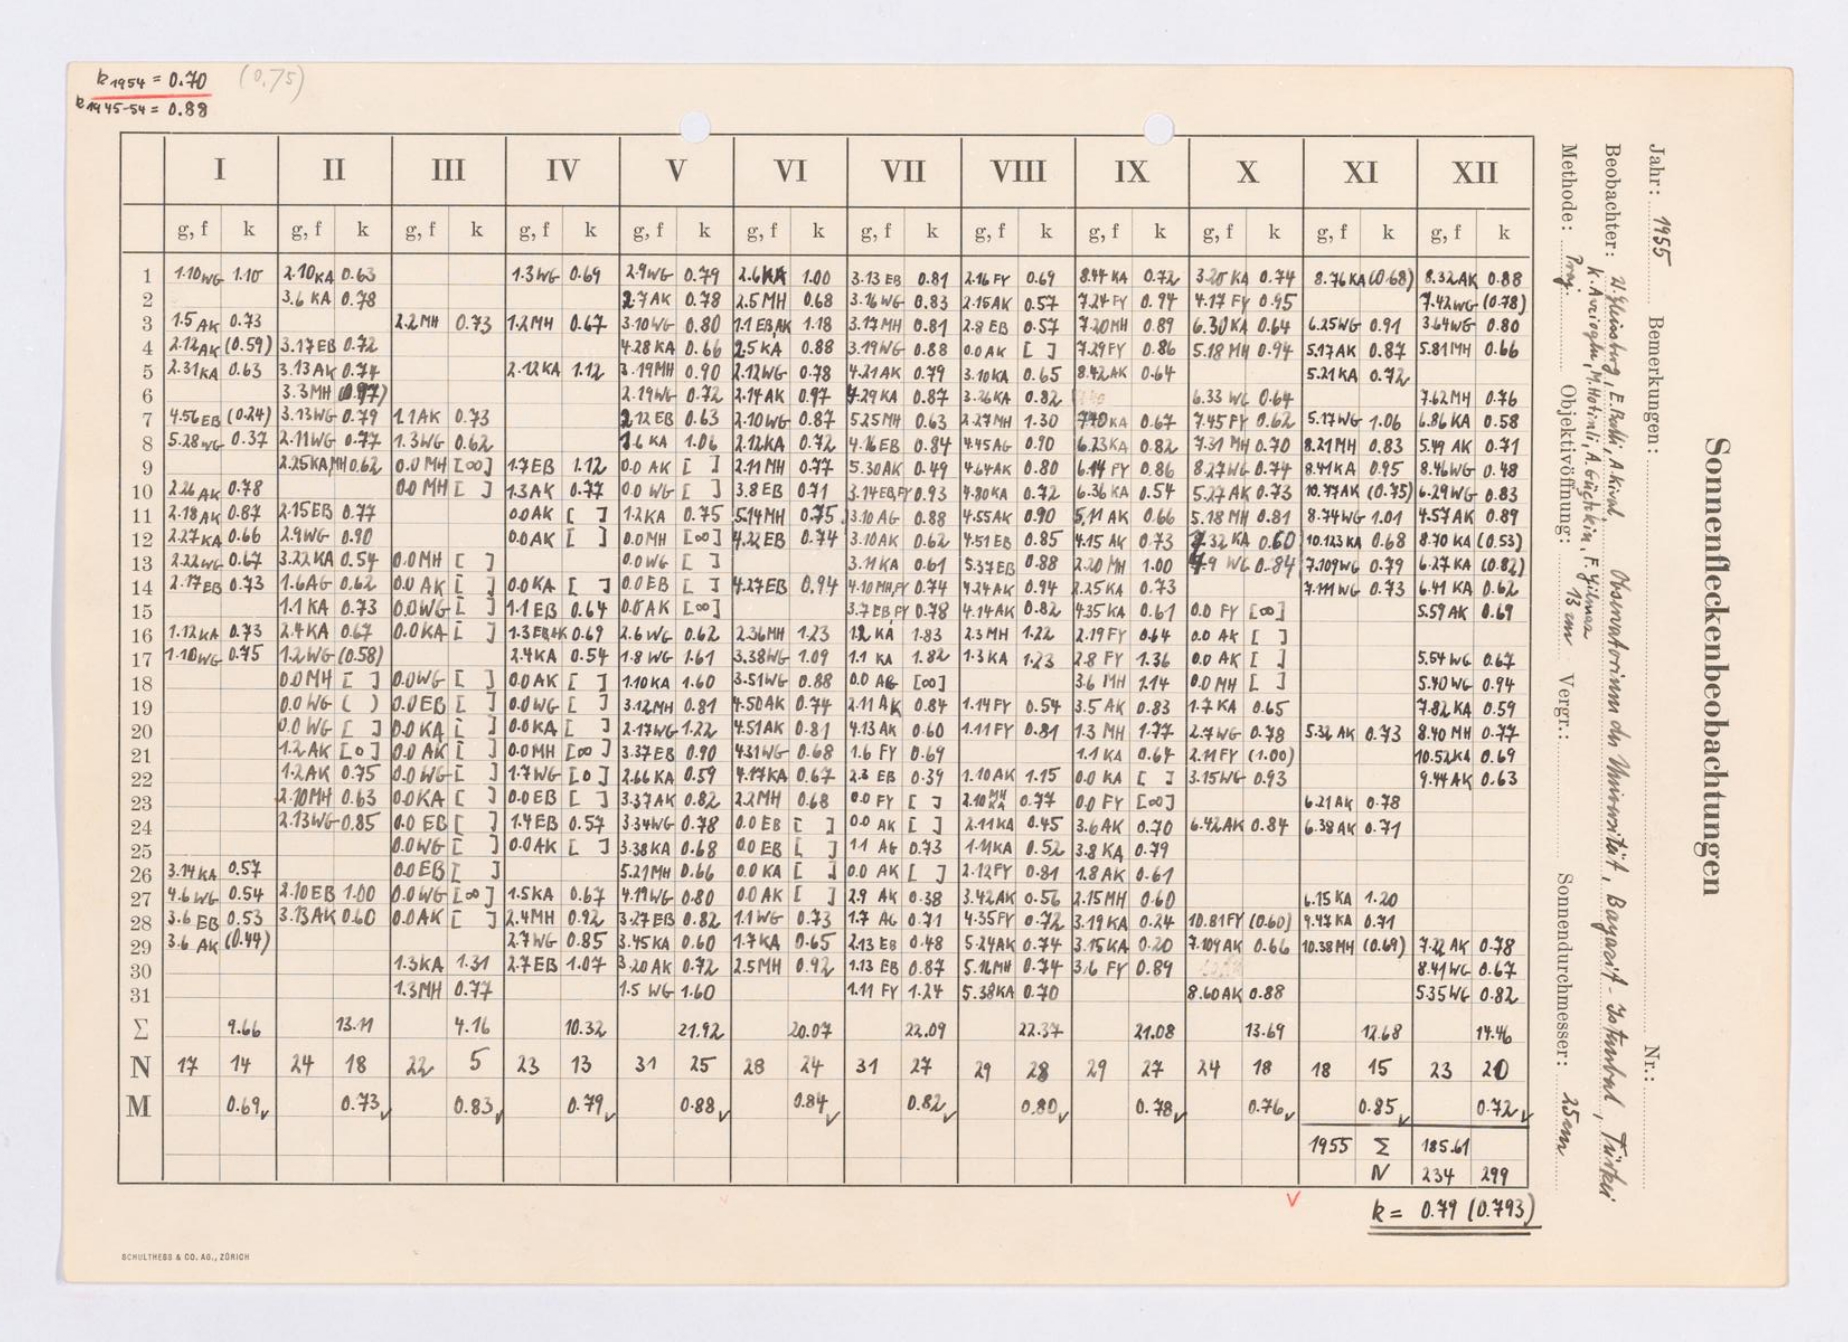 k1954 = 0.70 (0.75)
k1945-54 = 0.88
Sonnenfleckenbeobachtungen
Jahr: 1955 Bemerkungen: Nr.:
Beobachter: Observatorium der Universität, Bayazit - Istanbul, Türkei
Methode: Proj. Objektivöffnung: 13 cm Vergr.: Sonnendurchmesser: 25 cm
I II III IV V VI VII VIII IX X XI XII
g, f k g, f k g, f k g, f k g, f k g, f k g, f k g, f k g, f k g, f k g, f k g, f k
1 1.10 WG 1.10 2.10 KA 0.63 1.3 WG 0.69 2.9 WG 0.79 2.6 KA 1.00 3.13 EB 0.81 2.16 FY 0.69 8.44 KA 0.72 3.20 KA 0.74 8.76 KA (0.68) 8.32 AK 0.88
2 3.6 KA 0.78 2.7 AK 0.78 2.5 MH 0.68 3.16 WG 0.83 2.15 AK 0.57 7.24 FY 0.94 4.17 FY 0.95 7.42 WG (0.78)
3 1.5 AK 0.73 2.2 MH 0.73 1.2 MH 0.67 3.10 WG 0.80 1.1 EB,AK 1.18 3.17 MH 0.81 2.8 EB 0.57 7.20 MH 0.89 6.30 KA 0.64 6.25 WG 0.91 3.64 WG 0.80
4 2.12 AK (0.59) 3.17 EB 0.72 4.28 KA 0.66 2.5 KA 0.88 3.19 WG 0.88 0.0 AK [ ] 7.29 FY 0.86 5.18 MH 0.94 5.17 AK 0.87 5.81 MH 0.66
5 2.31 KA 0.63 3.13 AK 0.74 2.12 KA 1.12 3.19 MH 0.90 2.12 WG 0.78 4.21 AK 0.79 3.10 KA 0.65 8.42 AK 0.64 5.21 KA 0.72
6 3.3 MH (0.97) 2.19 WG 0.72 2.14 AK 0.97 4.29 KA 0.87 3.26 KA 0.82 6.33 WG 0.64 7.62 MH 0.76
7 4.56 EB (0.24) 3.13 WG 0.79 1.1 AK 0.73 2.12 EB 0.63 2.10 WG 0.87 5.25 MH 0.63 2.27 MH 1.30 7.40 KA 0.67 7.45 FY 0.62 5.17 WG 1.06 6.86 KA 0.58
8 5.28 WG 0.37 2.11 WG 0.77 1.3 WG 0.62 1.6 KA 1.06 2.12 KA 0.72 4.16 EB 0.84 4.45 AG 0.90 6.23 KA 0.82 7.31 MH 0.70 8.21 MH 0.83 5.49 AK 0.71
9 2.25 KA,MH 0.62 0.0 MH [∞] 1.7 EB 1.12 0.0 AK [ ] 2.11 MH 0.77 5.30 AK 0.49 4.64 AK 0.80 6.14 FY 0.86 8.27 WG 0.74 8.41 KA 0.95 8.46 WG 0.48
10 2.26 AK 0.78 0.0 MH [ ] 1.3 AK 0.77 0.0 WG [ ] 3.8 EB 0.71 3.14 EB,FY 0.93 4.80 KA 0.72 6.36 KA 0.54 5.27 AK 0.73 10.77 AK (0.75) 6.29 WG 0.83
11 2.18 AK 0.87 2.15 EB 0.77 0.0 AK [ ] 1.2 KA 0.75 5.14 MH 0.75 3.10 AG 0.88 4.55 AK 0.90 5.11 AK 0.66 5.18 MH 0.81 8.74 WG 1.01 4.57 AK 0.89
12 2.27 KA 0.66 2.9 WG 0.90 0.0 AK [ ] 0.0 MH [∞] 4.22 EB 0.74 3.10 AK 0.62 4.51 EB 0.85 4.15 AK 0.73 7.32 KA 0.60 10.123 KA 0.68 8.70 KA (0.53)
13 2.22 WG 0.67 3.22 KA 0.54 0.0 MH [ ] 0.0 WG [ ] 3.11 KA 0.61 5.37 EB 0.88 2.20 MH 1.00 4.9 WG 0.84 7.109 WG 0.79 6.27 KA (0.82)
14 2.17 EB 0.73 1.6 AG 0.62 0.0 AK [ ] 0.0 KA [ ] 0.0 EB [ ] 4.27 EB 0.94 4.10 MH,FY 0.74 4.24 AK 0.94 2.25 KA 0.73 7.111 WG 0.73 6.41 KA 0.62
15 1.1 KA 0.73 0.0 WG [ ] 1.1 EB 0.64 0.0 AK [∞] 3.7 EB,FY 0.78 4.14 AK 0.82 4.35 KA 0.61 0.0 FY [∞] 5.59 AK 0.69
16 1.12 KA 0.73 2.4 KA 0.67 0.0 KA [ ] 1.3 EB,AK 0.69 2.6 WG 0.62 2.36 MH 1.23 1.2 KA 1.83 2.3 MH 1.22 2.19 FY 0.64 0.0 AK [ ]
17 1.10 WG 0.75 1.2 WG (0.58) 2.4 KA 0.54 1.8 WG 1.61 3.38 WG 1.09 1.1 KA 1.82 1.3 KA 1.23 2.8 FY 1.36 0.0 AK [ ] 5.54 WG 0.67
18 0.0 MH [ ] 0.0 WG [ ] 0.0 AK [ ] 1.10 KA 1.60 3.51 WG 0.88 0.0 AG [∞] 3.6 MH 1.14 0.0 MH [ ] 5.40 WG 0.94
19 0.0 WG ( ) 0.0 EB [ ] 0.0 WG [ ] 3.12 MH 0.81 4.50 AK 0.74 2.11 AK 0.84 1.14 FY 0.54 3.5 AK 0.83 1.7 KA 0.65 7.82 KA 0.59
20 0.0 WG [ ] 0.0 KA [ ] 0.0 KA [ ] 2.17 WG 1.22 4.51 AK 0.81 4.13 AK 0.60 1.11 FY 0.81 1.3 MH 1.77 2.7 WG 0.78 5.32 AK 0.73 8.40 MH 0.77
21 1.2 AK [0] 0.0 AK [ ] 0.0 MH [∞] 3.37 EB 0.90 4.31 WG 0.68 1.6 FY 0.69 1.1 KA 0.64 2.11 FY (1.00) 10.52 KA 0.69
22 1.2 AK 0.75 0.0 WG [ ] 1.7 WG [0] 2.66 KA 0.59 4.17 KA 0.67 2.3 EB 0.39 1.10 AK 1.15 0.0 KA [ ] 3.15 WG 0.93 9.44 AK 0.63
23 2.10 MH 0.63 0.0 KA [ ] 0.0 EB [ ] 3.37 AK 0.82 2.2 MH 0.68 0.0 FY [ ] 2.10 0.77 0.0 FY [∞] 6.21 AK 0.78
24 2.13 WG 0.85 0.0 EB [ ] 1.4 EB 0.57 3.34 WG 0.78 0.0 EB [ ] 0.0 AK [ ] 2.11 KA 0.45 3.6 AK 0.70 6.42 AK 0.84 6.38 AK 0.71
25 0.0 WG [ ] 0.0 AK [ ] 3.38 KA 0.68 0.0 EB [ ] 1.1 AG 0.73 1.11 KA 0.52 3.8 KA 0.79
26 3.14 KA 0.57 0.0 EB [ ] 5.21 MH 0.66 0.0 KA [ ] 0.0 AK [ ] 2.12 FY 0.81 1.8 AK 0.61
27 4.6 WG 0.54 2.10 EB 1.00 0.0 WG [∞] 1.5 KA 0.67 4.19 WG 0.80 0.0 AK [ ] 2.9 AK 0.38 3.42 AK 0.56 2.15 MH 0.60 6.15 KA 1.20
28 3.6 EB 0.53 3.13 AK 0.60 0.0 AK [ ] 2.4 MH 0.92 3.27 EB 0.82 1.1 WG 0.73 1.7 AG 0.71 4.35 FY 0.72 3.19 KA 0.24 10.81 FY (0.60) 9.47 KA 0.71
29 3.6 AK (0.44) 2.7 WG 0.85 3.45 KA 0.60 1.7 KA 0.65 2.13 EB 0.48 5.24 AK 0.74 3.15 KA 0.20 7.104 AK 0.66 10.38 MH (0.69) 7.22 AK 0.78
30 1.3 KA 1.31 2.7 EB 1.07 3.20 AK 0.72 2.5 MH 0.92 1.13 EB 0.87 5.16 MH 0.74 3.6 FY 0.89 8.41 WG 0.67
31 1.3 MH 0.77 1.5 WG 1.60 1.11 FY 1.24 5.38 KA 0.70 8.60 AK 0.88 5.35 WG 0.82
Σ 9.66 13.11 4.16 10.32 21.92 20.07 22.09 22.37 21.08 13.69 12.68 14.46
N 17 14 24 18 22 5 23 13 31 25 28 24 31 27 29 28 29 27 24 18 18 15 23 20
M 0.69 0.73 0.83 0.79 0.88 0.84 0.82 0.80 0.78 0.76 0.85 0.72
1955 Σ 185.61
N 234 299
k = 0.79 (0.793)
SCHULTHESS & CO. AG., ZÜRICH